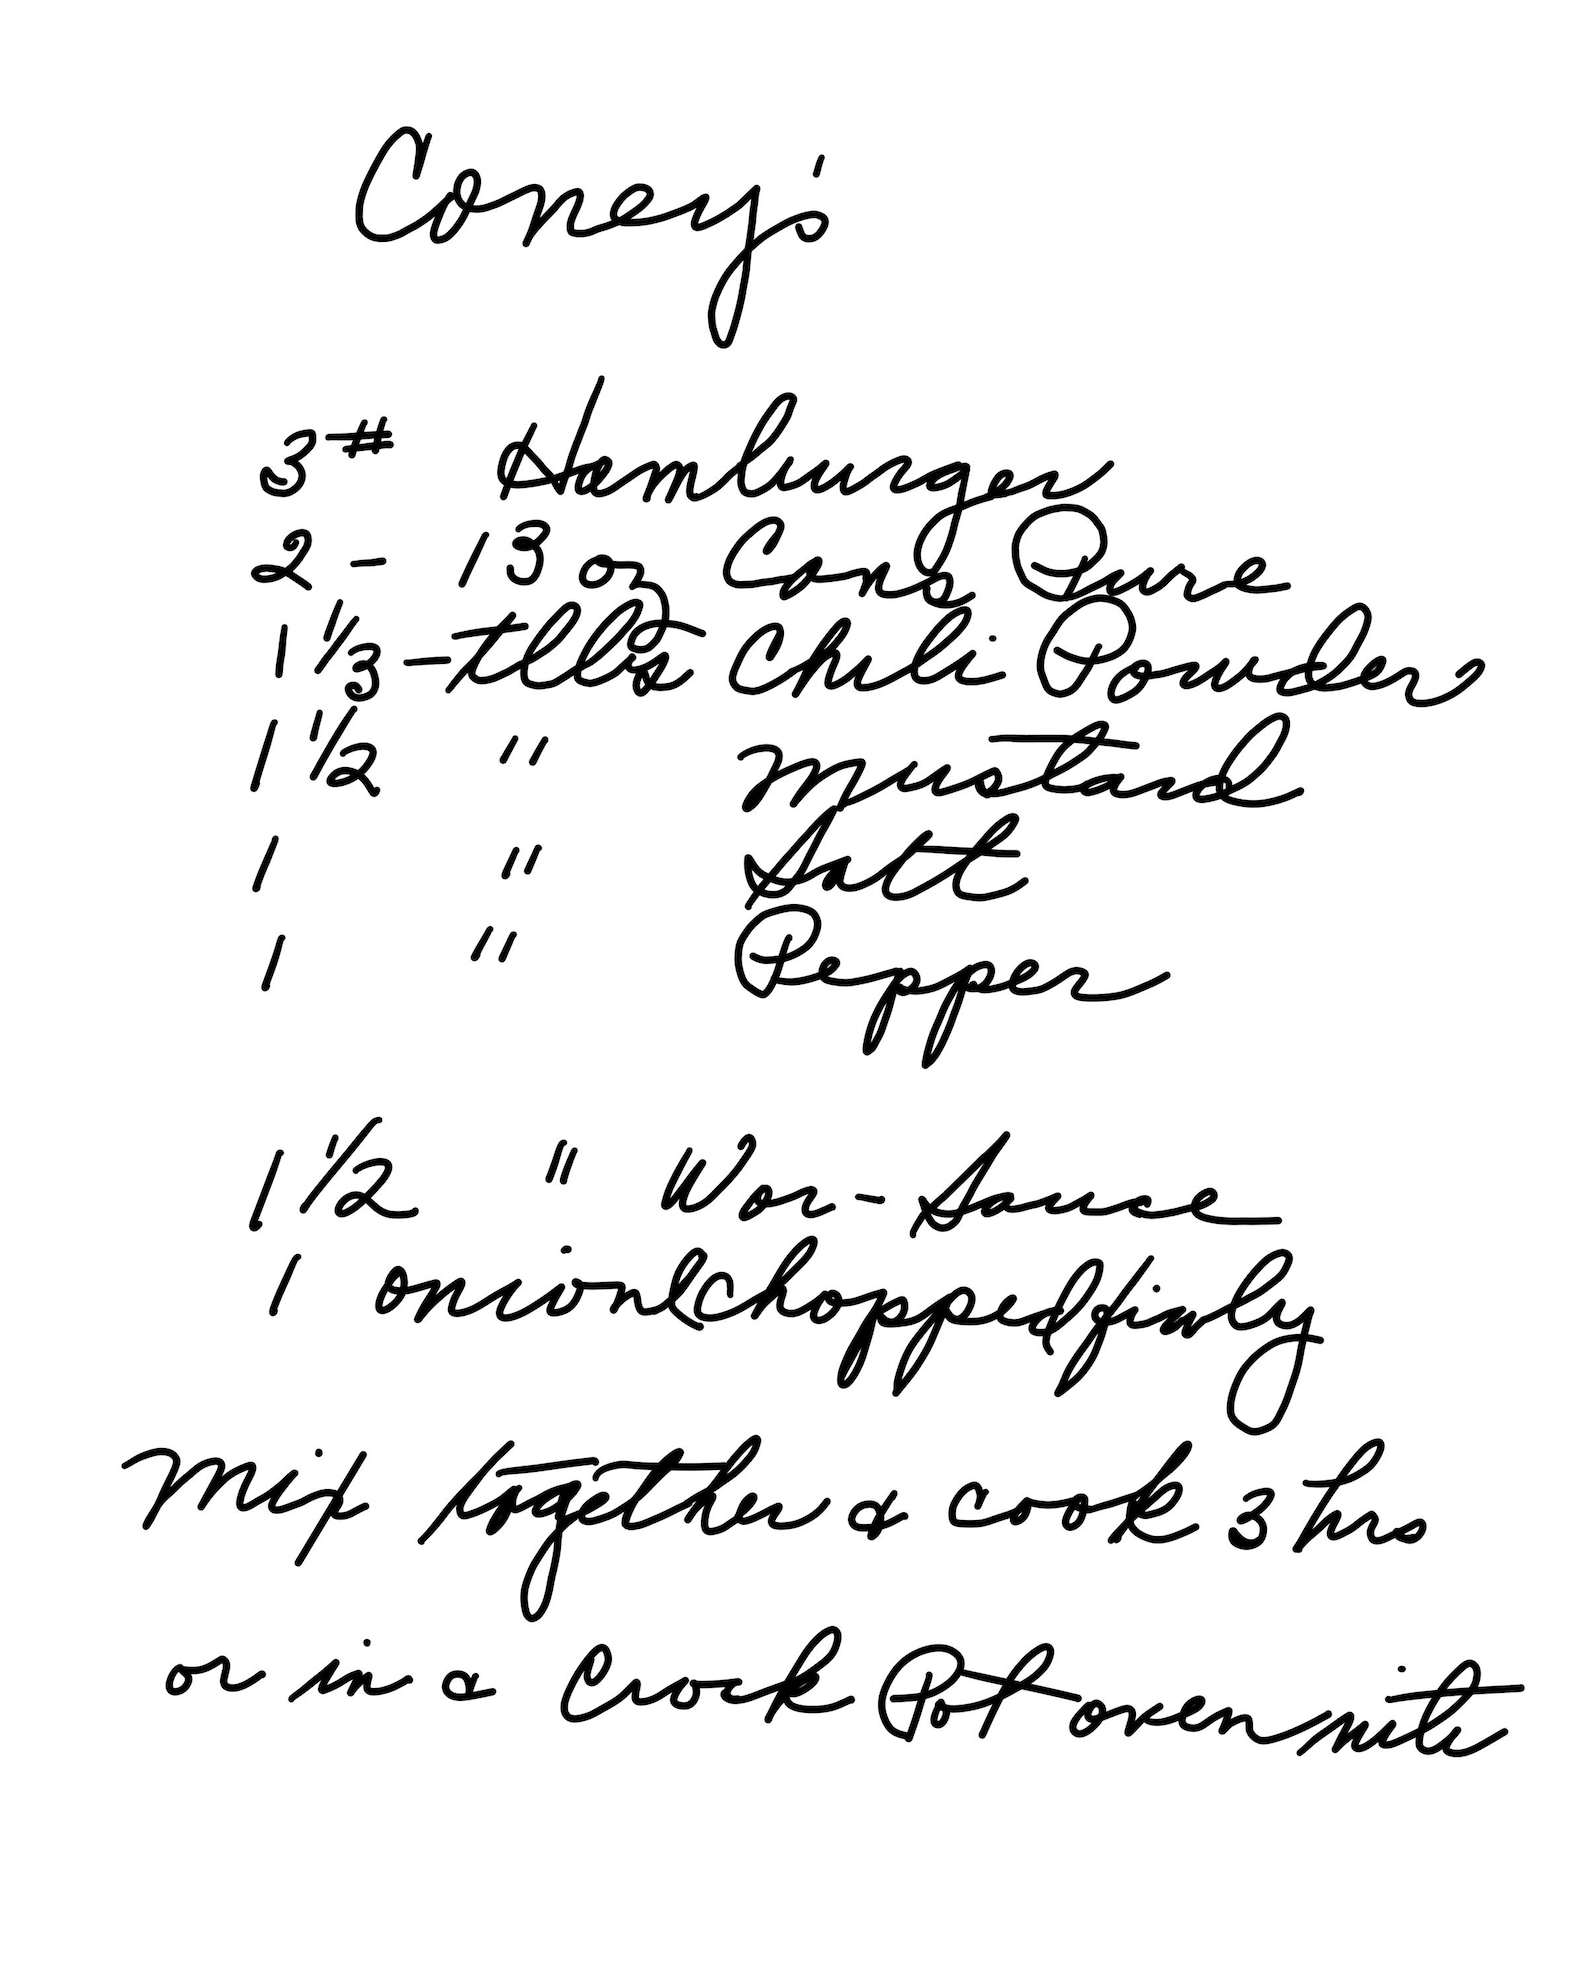 Coney's
3# Hamburger
2 - 13 oz Cans Pure
1 1/3 - tlbs Chili Powder
1 1/2 " Mustard
1 " Salt
1 " Pepper
1 1/2 " Wor-Sauce
1 onion (chopped finly
Mix together & cook 3 hrs
or in a Crock Pot over nite